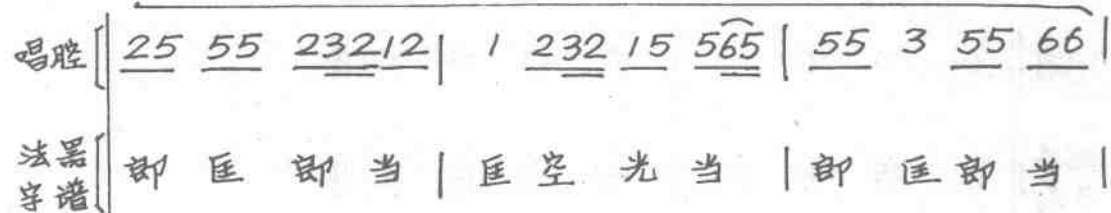 唱腔 25 55 23212 | 1 232 15 565 | 55 3 55 66 |
法器字谱 郎 匡 郎 当 | 匡 空 光 当 | 郎 匡 郎 当 |